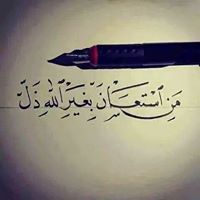 مَنِ ٱسْتَعَانَ بِغَيْرِ ٱللَّهِ ذَلَّ